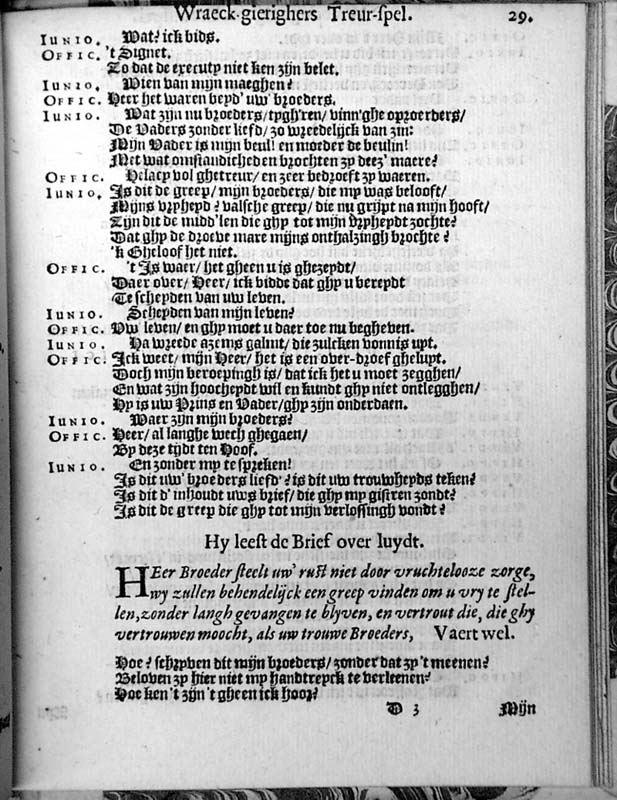 Wraeck-gierighers Treur-spel. 29.
IUNIO. Wat? ick bids.
OFFIC. 't Signet.
Zo dat de executy niet ken zijn belet.
IUNIO. Wien van mijn maeghen?
OFFIC. Heer het waren beyd' uw' broeders.
IUNIO. Wat zijn nu broeders/ tygh'ren/ vinn'ghe oproerders/
De Vaders zonder liefd/ zo wreedelijck van zin:
Mijn Vader is mijn beul! en moeder de beulin!
Met wat omstandicheden brochten zy deez' maere?
OFFIC. Helacy vol ghetreur/ en zeer bedroeft zy waeren.
IUNIO. Is dit de greep/ mijn broeders/ die my was belooft/
Mijns vryheyd? valsche greep/ die nu grijpt na mijn hooft/
Zijn dit de midd'len die ghy tot mijn vryheydt zochte?
Dat ghy de droeve mare mijns onthalzingh brochte?
'k Gheloof het niet.
OFFIC. 't Is waer/ het gheen u is ghezeydt/
Daer over/ Heer/ ick bidde dat ghy u bereydt
Te scheyden van uw leven.
IUNIO. Scheyden van mijn leven?
OFFIC. Uw leven/ en ghy moet u daer toe nu begheven.
IUNIO. Ha wreede azems galmt/ die zulcken vonnis upt.
OFFIC. Ick weet/ mijn Heer/ het is een over-droef ghelupt.
Doch mijn beroepingh is/ dat ick het u moet zegghen/
En wat zijn hoocheydt wil en kundt ghy niet ontlegghen/
Hy is uw Prins en Vader/ ghy zijn onderdaen.
IUNIO. Waer zijn mijn broeders?
OFFIC. Heer/ al langhe wech ghegaen/
By deze tijdt ten Hoof.
IUNIO. En zonder my te spreken!
Is dit uw' broeders liefd'? is dit uw trouwheyds teken?
Is dit d' inhoudt uws brief/ die ghy my gistren zondt?
Is dit de greep die ghy tot mijn verlossingh vondt?
Hy leest de Brief over luydt.
HEer Broeder steelt uw' rust niet door vruchtelooze zorge,
wy zullen behendelijck een greep vinden om u vry te stel-
len, zonder langh gevangen te blyven, en vertrout die, die ghy
vertrouwen moocht, als uw trouwe Broeders, Vaert wel.
Hoe? schryven dit mijn broeders/ zonder dat zy 't meenen?
Beloven zy hier niet my handtreyck te verleenen?
Hoe ken 't zijn 't gheen ick hoor?
D 3 Mijn